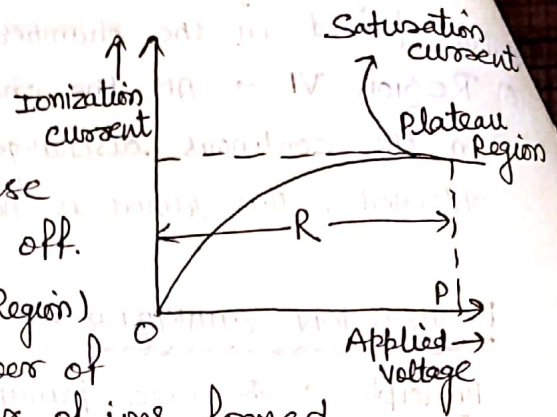 Saturation
current
Ionization
current
Plateau
Region
se
off.
R
Region)
P
O
er of
Applied →
voltage
of ions formed